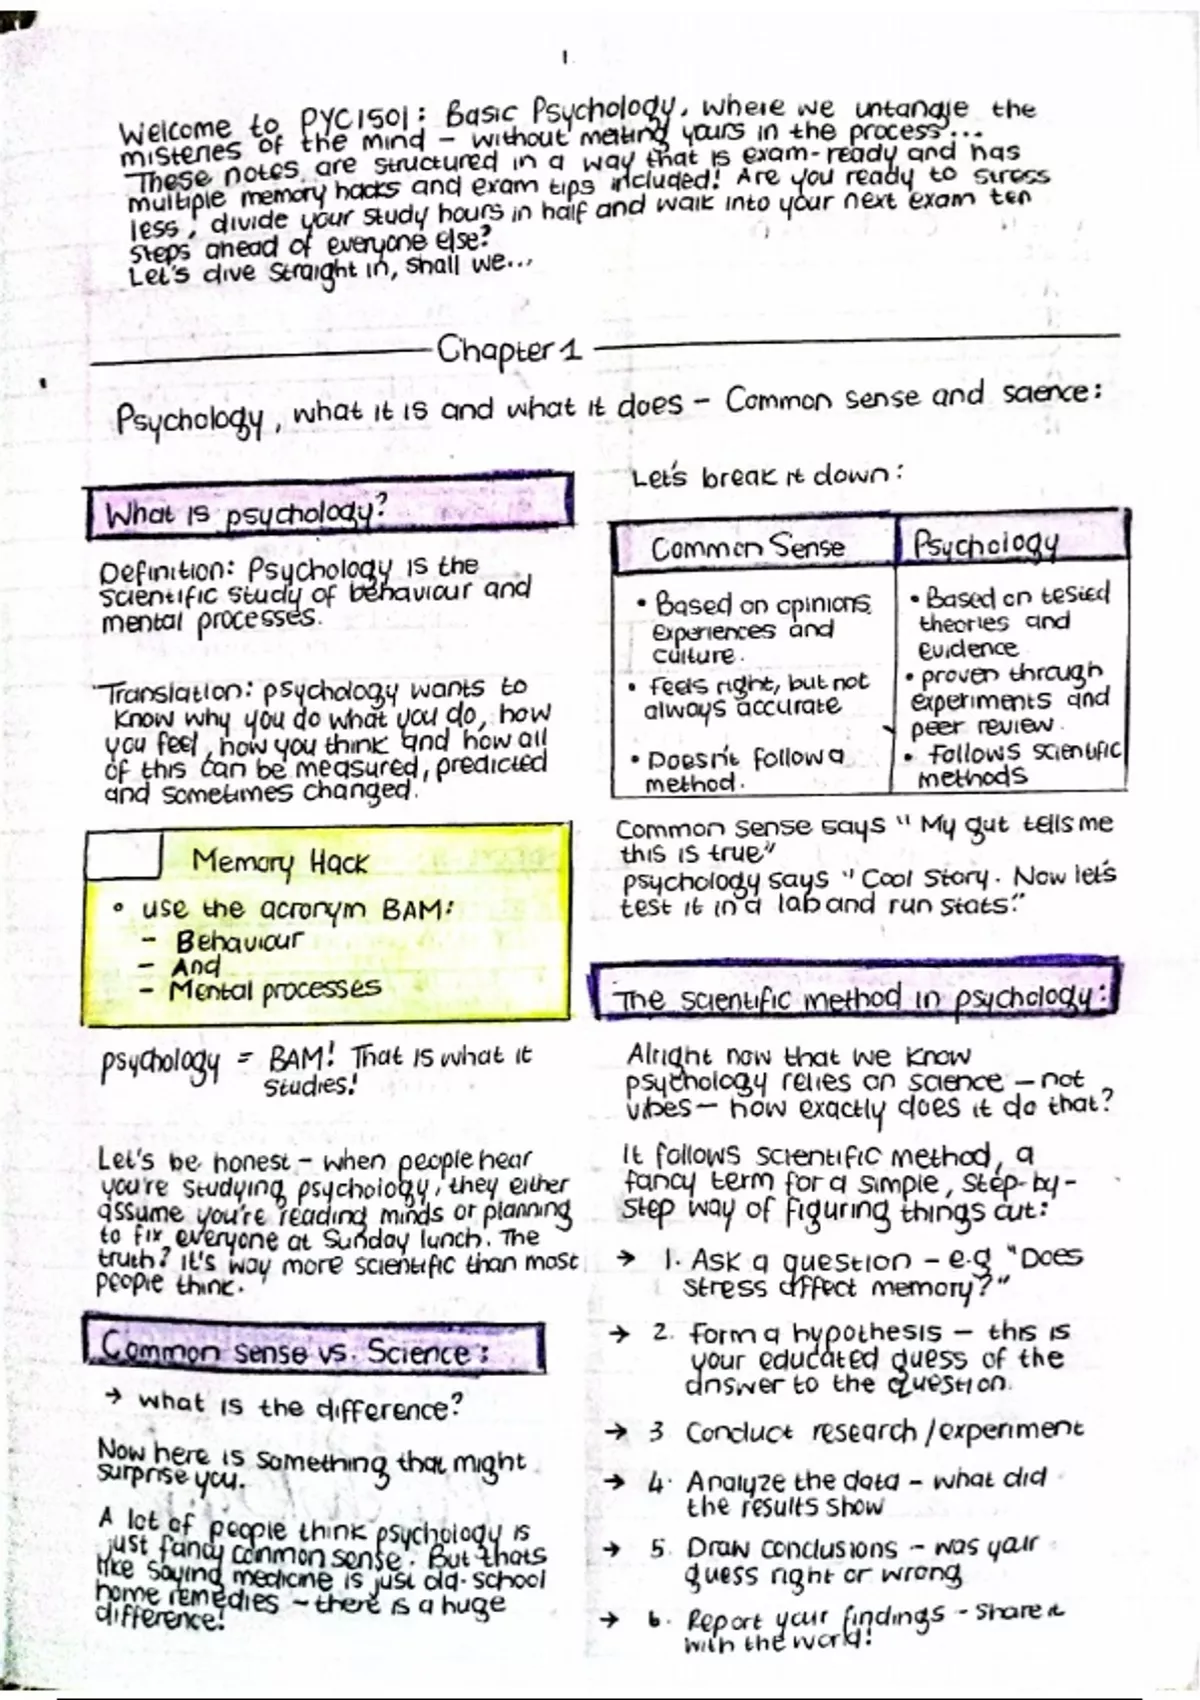 1
Welcome to PYC1501: Basic Psychology, where we untangle the
misteries of the mind – without melting yours in the process...
These notes are structured in a way that is exam-ready and has
multiple memory hacks and exam tips included! Are you ready to stress
less, divide your study hours in half and walk into your next exam ten
steps ahead of everyone else?
Let's dive straight in, shall we...
Chapter 1
Psychology, what it is and what it does – Common sense and science:
What is psychology?
Definition: Psychology is the
scientific study of behaviour and
mental processes.
Translation: psychology wants to
know why you do what you do, how
you feel, how you think and how all
of this can be measured, predicted
and sometimes changed.
Memory Hack
• use the acronym BAM:
– Behaviour
– And
– Mental processes
psychology = BAM! That is what it
studies!
Let's be honest – when people hear
you're studying psychology, they either
assume you're reading minds or planning
to fix everyone at Sunday lunch. The
truth? it's way more scientific than most
people think.
Common sense vs. Science:
→ what is the difference?
Now here is something that might
surprise you.
A lot of people think psychology is
just fancy common sense. But thats
like saying medicine is just old-school
home remedies – there is a huge
difference!
Let's break it down:
Common Sense
• Based on opinions
experiences and
culture.
• feels right, but not
always accurate
• Doesn't follow a
method.
Psychology
• Based on tested
theories and
evidence
• proven through
experiments and
peer review.
• follows scientific
methods
Common sense says "My gut tells me
this is true"
psychology says "Cool story. Now let's
test it in a lab and run stats."
The scientific method in psychology:
Alright now that we know
psychology relies on science – not
vibes – how exactly does it do that?
It follows scientific method, a
fancy term for a simple, step-by-
step way of figuring things out:
→ 1. Ask a question – e.g "Does
stress affect memory?"
→ 2. form a hypothesis – this is
your educated guess of the
answer to the question.
→ 3 Conduct research/experiment
→ 4. Analyze the data – what did
the results show
→ 5. Draw conclusions – was your
guess right or wrong
→ 6. Report your findings – Share it
with the world!